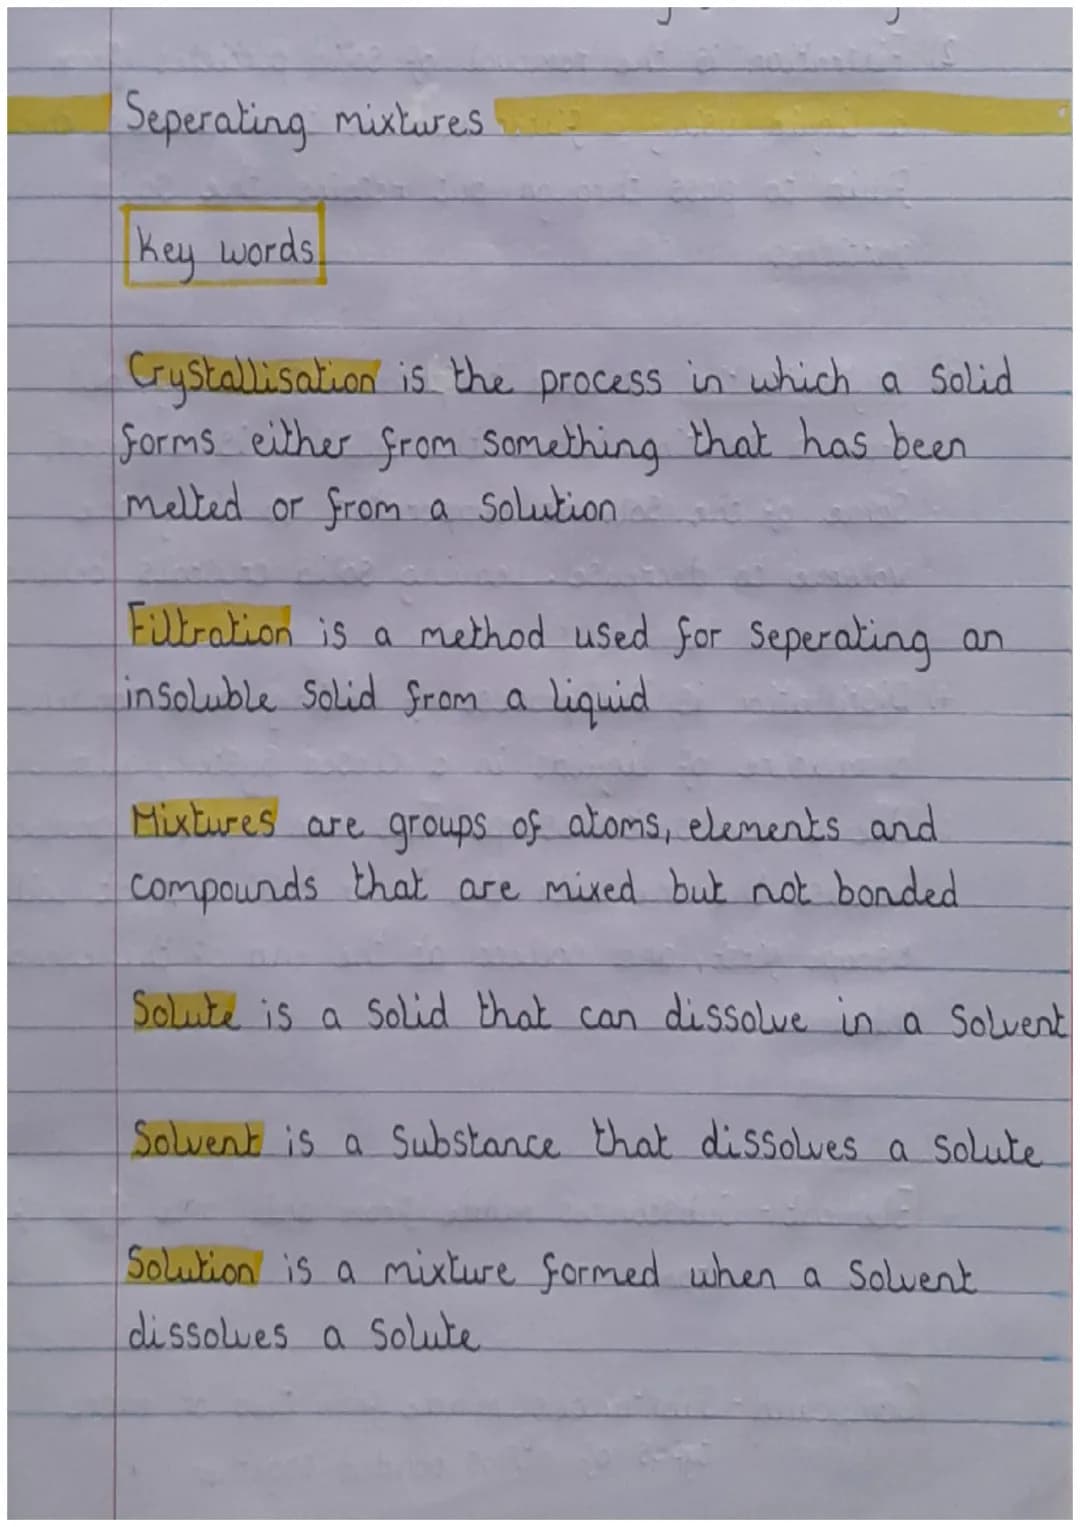 Seperating mixtures
Key words
Crystallisation is the process in which a solid
forms either from something that has been
melted or from a solution
Filtration is a method used for seperating an
insoluble solid from a liquid
Mixtures are groups of atoms, elements and
compounds that are mixed but not bonded
Solute is a solid that can dissolve in a solvent
Solvent is a substance that dissolves a solute
Solution is a mixture formed when a solvent
dissolves a solute